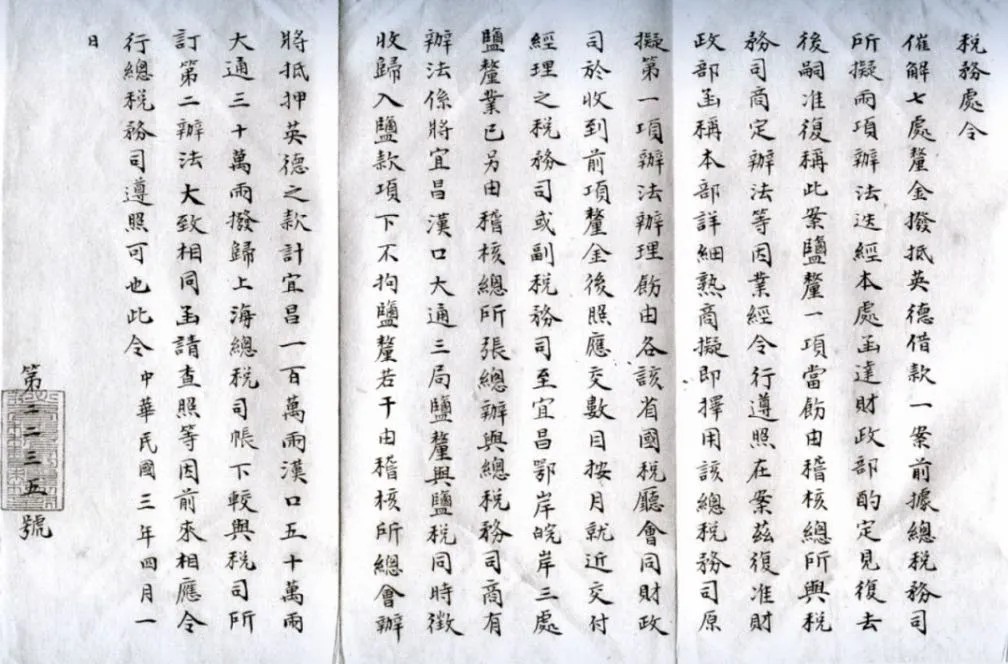 稅務處令
催解七處釐金撥抵英德借款一案前據總稅務司
所擬兩項辦法迭經本處函達財政部酌定見復去
後嗣准復稱此案鹽釐一項當飭由稽核總所與稅
務司商定辦法等因業經令行遵照在案茲復准財
政部函稱本部詳細熟商擬即擇用該總稅務司原
擬第一項辦法辦理飭由各該省國稅廳會同財政
司於收到前項釐金後照應交數目按月就近交付
經理之稅務司或副稅務司至宜昌鄂岸皖岸三處
鹽釐業已另由稽核總所張總辦與總稅務司商有
辦法係將宜昌漢口大通三局鹽釐與鹽稅同時徵
收歸入鹽款項下不拘鹽釐若干由稽核所總會辦
將抵押英德之款計宜昌一百萬兩漢口五十萬兩
大通三十萬兩撥歸上海總稅司帳下較與稅司所
訂第二辦法大致相同函請查照等因前來相應令
行總稅務司遵照可也此令中華民國三年四月一
日
第二二三五號